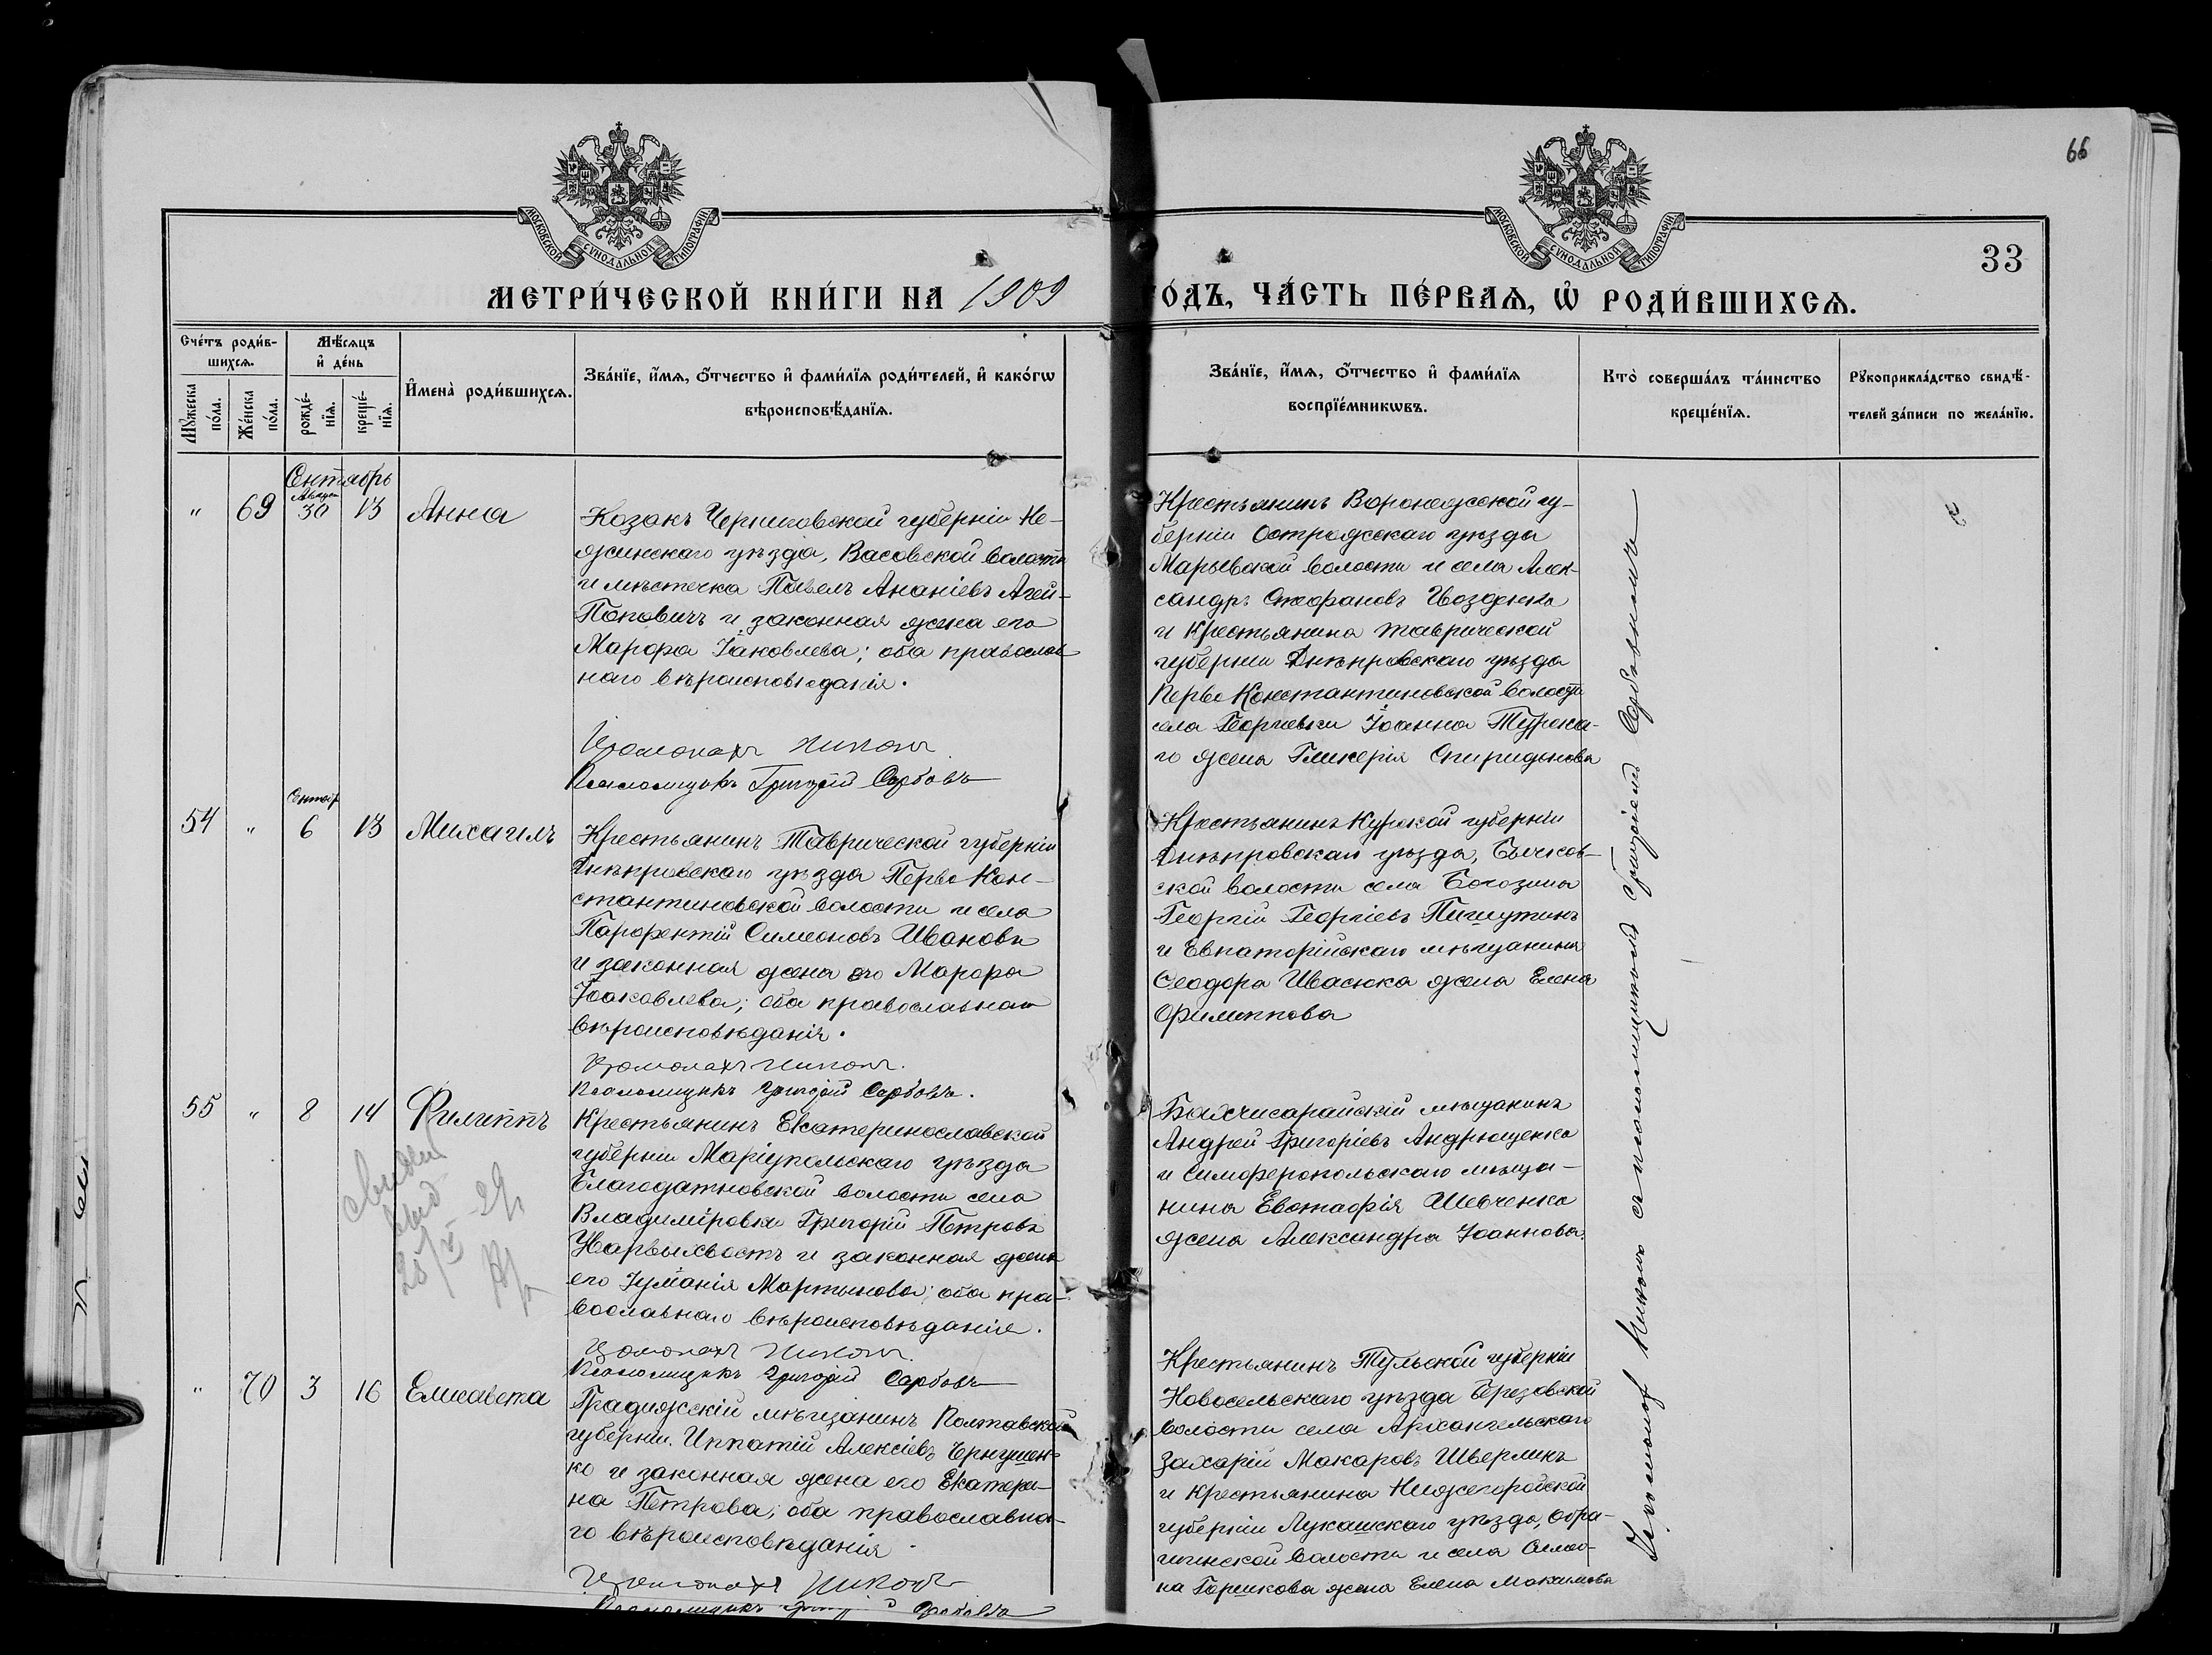 66
МОСКОВСКОЙ СѴНОДАЛЬНОЙ ТИПОГРАФІИ
МОСКОВСКОЙ СѴНОДАЛЬНОЙ ТИПОГРАФІИ
33
МЕТРИ́ЧЕСКОЙ КНИ́ГИ НА 1909
ГО́ДЪ, ЧА́СТЬ ПЕ́РВАѦ, Ѡ РОДИ́ВШИХСѦ.
Сче́тъ роди́в-
шихсѧ.
Мꙋ́жеска по́ла.
Же́нска по́ла.
Мѣ́сѧцъ
и҆ де́нь
рожде́-
нїѧ.
креще́-
нїѧ.
И҆мена̀ роди́вшихсѧ.
Зва́нїе, и҆́мѧ, ѻ҆́тчество и҆ фами́лїѧ роди́телей, и҆ како́гѡ
вѣроисповѣ́данїѧ.
Зва́нїе, и҆́мѧ, ѻ҆́тчество и҆ фами́лїѧ
воспрїе́мникѡвъ.
Кто̀ соверша́лъ та́инство
креще́нїѧ.
Рꙋкоприкла́дство свидѣ́-
телей за́писи по жела́нїю.
Сентябрь
Август
" 69 30 13 Анна
Козакъ Черниговской губерніи Не-
жинскаго уѣзда, Васовской волости
и мѣстечка Павелъ Ананіевъ Агей-
Поповичъ и законная жена его
Марфа Іаковлева; оба православ
наго вѣроисповѣданія.
Іеромонахъ Никонъ
Псаломщикъ Григорій Сорбовъ
Крестьянинъ Воронежской гу-
берніи Острожскаго уѣзда
Марьевской волости и села Алек-
сандръ Стефановъ Гвозденко
и Крестьянина Таврической
губерніи Днѣпровскаго уѣзда
Перво Константиновской волости
села Георгіевки Іоанна Турска-
го жена Гликерія Спиридонова
Сентяб
54 " 6 13 Михаилъ
Крестьянинъ Таврической губерніи
Днѣпровскаго уѣзда Перво Кон-
стантиновской волости и села
Парфентій Симеоновъ Ивановъ
и законная жена его Марфа
Іоаковлева; оба православнаго
вѣроисповѣданія.
Іеромонахъ Никонъ.
Псаломщикъ Григорій Сорбовъ.
Крестьянинъ Курской губерніи
Днѣпровскаго уѣзда, Бычков-
ской волости села
Георгій Георгіевъ Пигиутинъ
и Евпаторійскаго мѣщанина
Ѳеодора Ивасюка жена Елена
Филиппова
55 " 8 14 Филиппъ
Крестьянинъ Екатеринославской
губерніи Маріупольскаго уѣзда
Благодатновской волости села
Владиміровки Григорій Петровъ
и законная жена
его Іуліанія Мартынова; оба пра-
вославнаго вѣроисповѣданія.
Іеромонахъ Никонъ.
Псаломщикъ Григорій Сорбовъ
Бахчисарайскій мѣщанинъ
Андрей Григоріевъ Андрющенко
и Симферопольскаго мѣща-
нина Евстафія Шевченко
жена Александра Іоаннова.
" 70 3 16 Елисавета
Градижскій мѣщанинъ Полтавской
губерніи. Ипатій Алексіевъ Чернушен-
ко и законная жена его Екатери-
на Петрова; оба православна-
го вѣроисповѣданія.
Іеромонахъ Никонъ
Псаломщикъ Григорій Сорбовъ
Крестьянинъ Тульской губерніи
Новосельскаго уѣзда Березовской
волости села Архангельскаго
Захарій Макаровъ Шверликъ
и Крестьянина Нижегородской
губерніи Лукашскаго уѣзда, Обра-
волости и села Симео-
на Горшкова жена Елена Максимова
Іеромонахъ Никонъ съ псаломщикомъ Григоріемъ Сорбовымъ